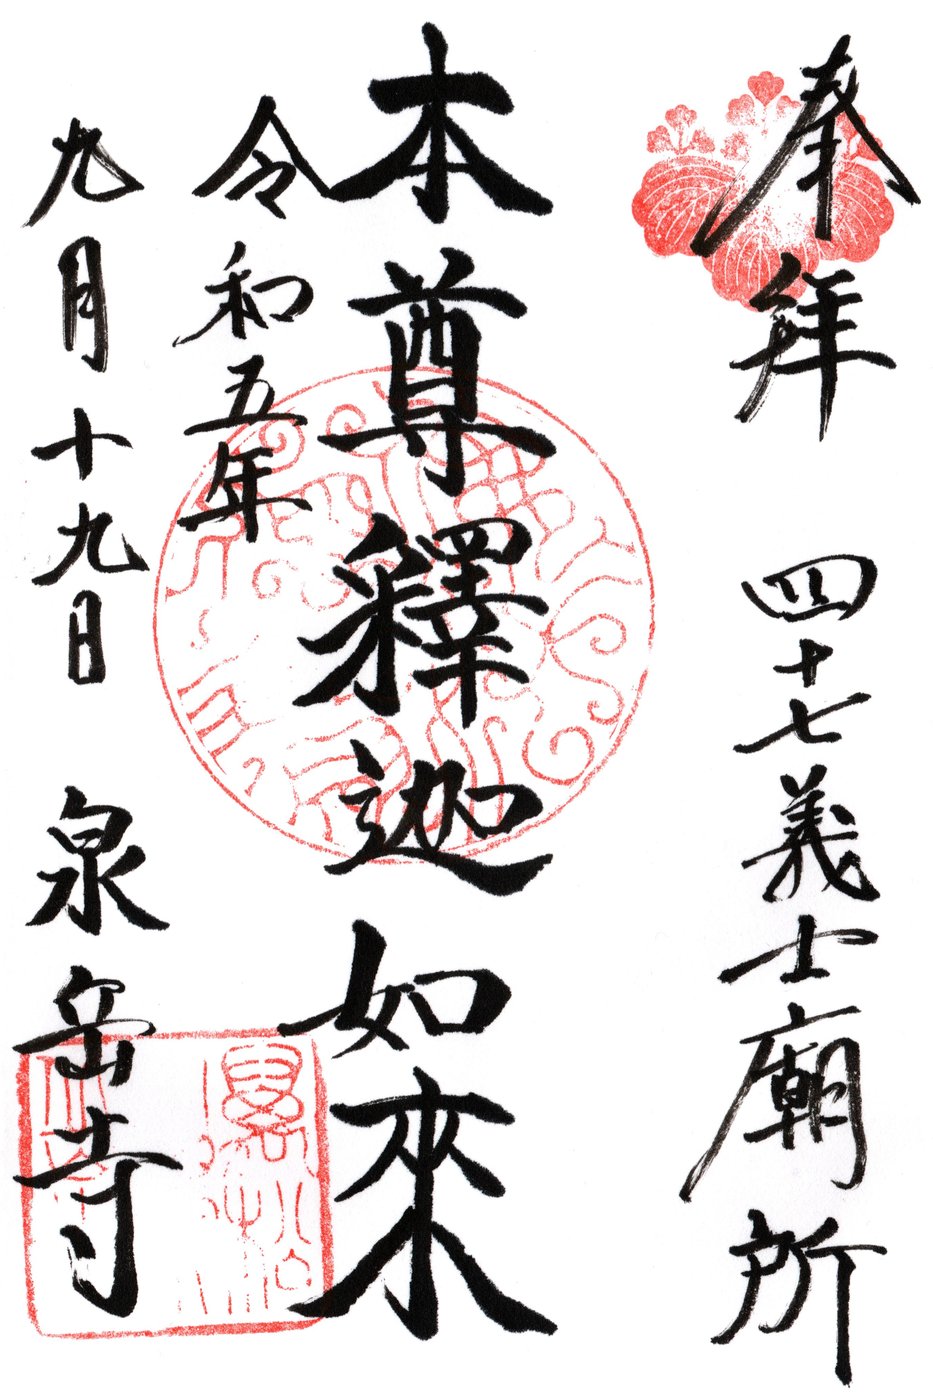 奉拜
四十七義士廟所
本尊釋迦如來
令和五年
九月十九日
泉岳寺